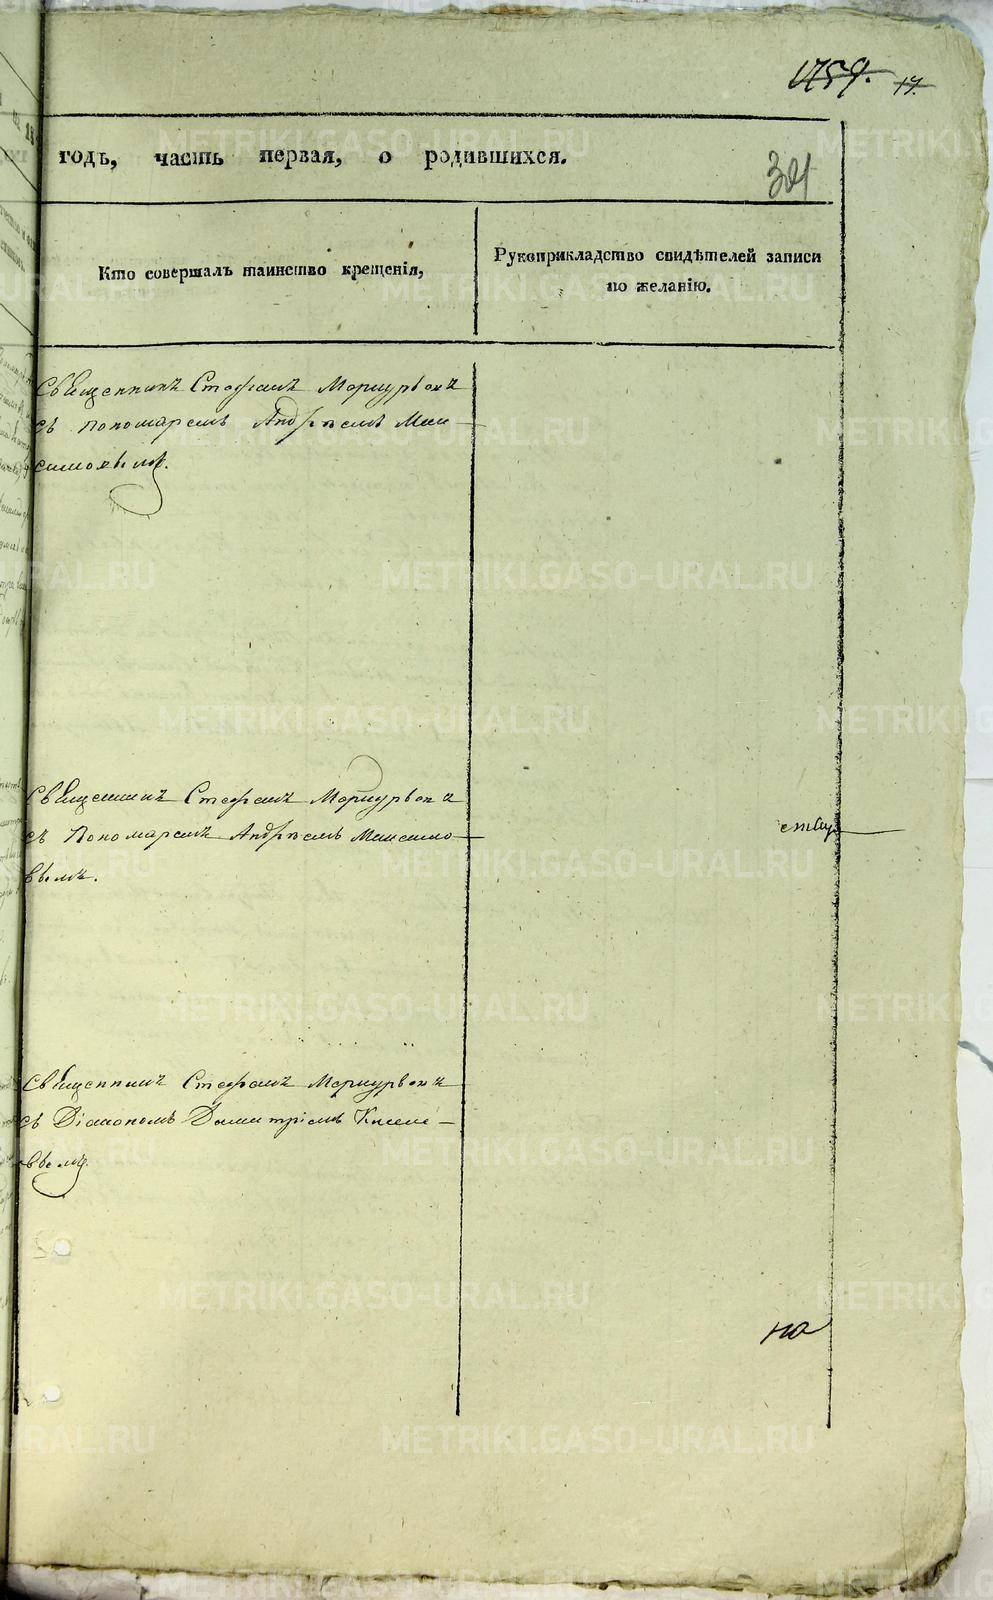 1759. 17.
годъ, часть первая, о родившихся.
321
Кто совершалъ таинство крещенія,
Рукоприкладство свидѣтелей записи
по желанію.
Священникъ Стефанъ
съ пономаремъ Андреемъ Мак-
симовымъ.
Священникъ Стефанъ
съ Пономаремъ Андреемъ Максимо-
вымъ.
Священникъ Стефанъ
съ Діакономъ Димитріемъ
вымъ.
на
METRIKI.GASO-URAL.RU